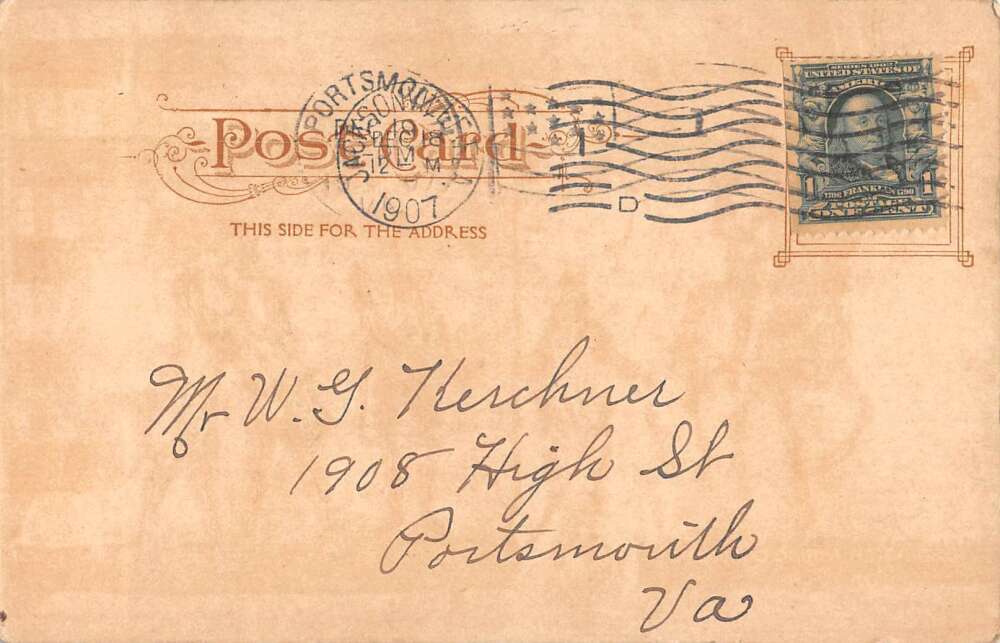 Post Card
THIS SIDE FOR THE ADDRESS
PORTSMOUTH
JACKSONVILLE
1907
1
D
SERIES 1902
UNITED STATES OF
AMERICA
1 FRANKLIN 1
POSTAGE
ONE CENT
Mr W. G. Kerchner
1908 High St
Portsmouth
Va